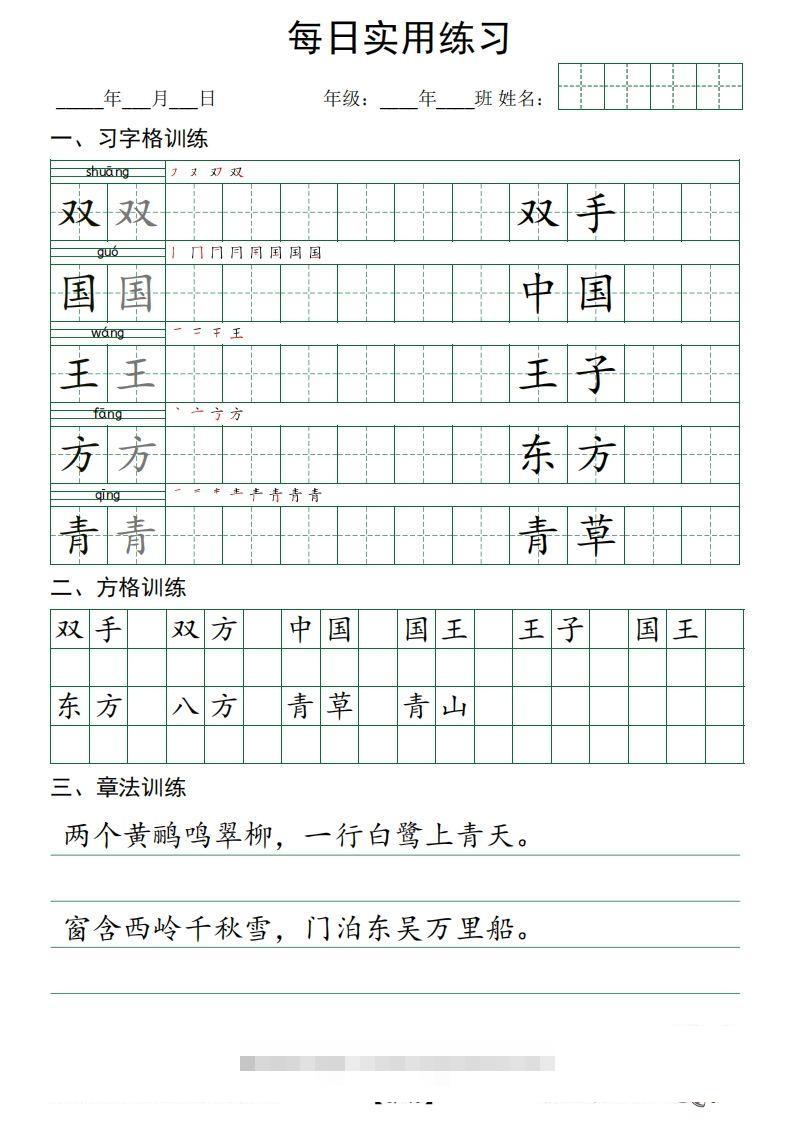 每日实用练习
_____年___月___日 年级：____年____班 姓名：
一、习字格训练
shuāng
双 双 双 手
guó
国 国 中 国
wáng
王 王 王 子
fāng
方 方 东 方
qīng
青 青 青 草
二、方格训练
双手 双方 中国 国王 王子 国王
东方 八方 青草 青山
三、章法训练
两个黄鹂鸣翠柳，一行白鹭上青天。
窗含西岭千秋雪，门泊东吴万里船。